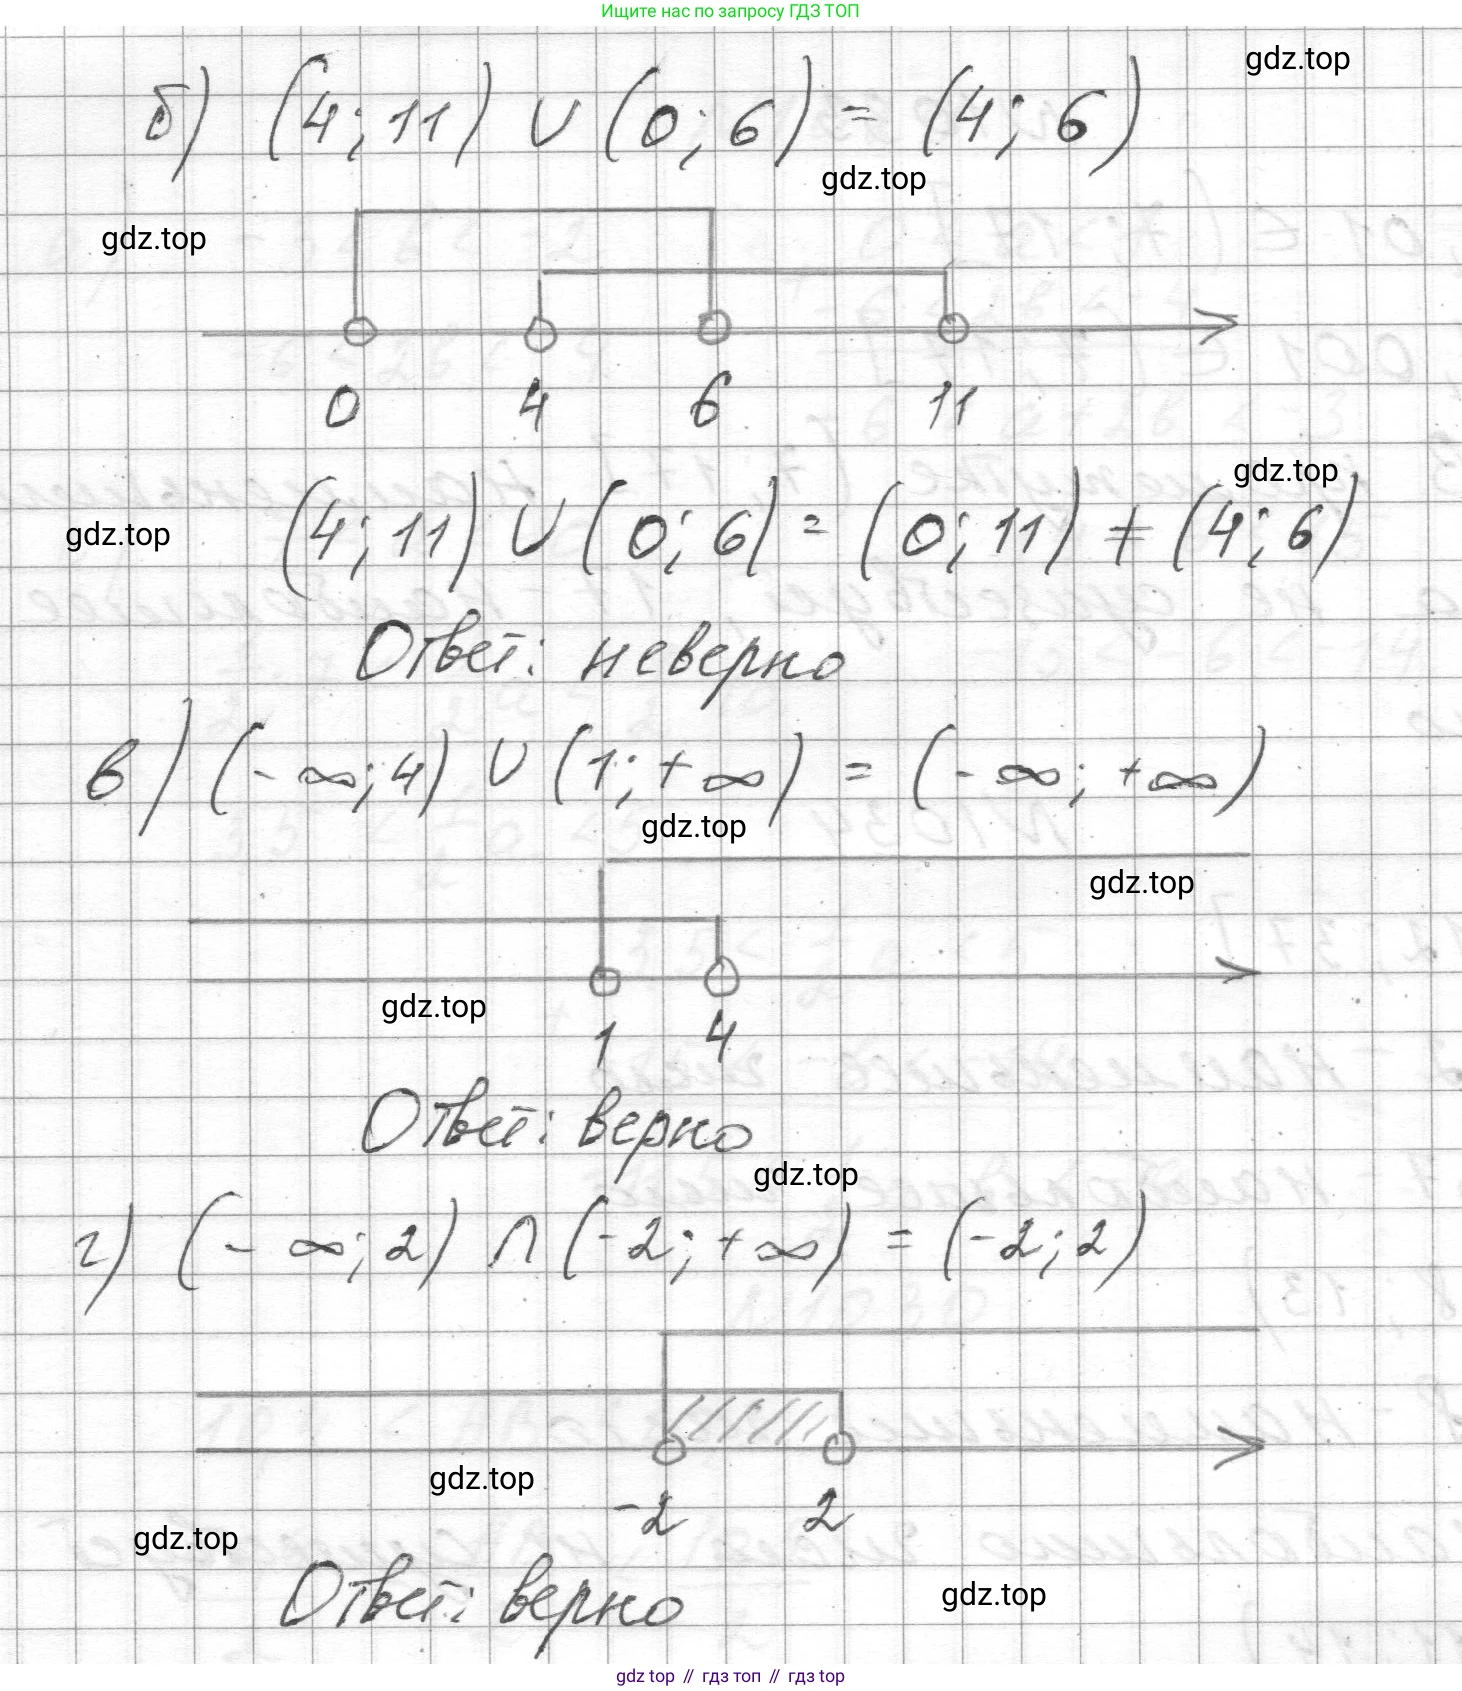 Ищите нас по запросу ГДЗ ТОП
gdz.top
б) (4; 11) ∪ (0; 6) = (4; 6)
gdz.top
gdz.top
0 4 6 11
gdz.top
gdz.top
(4; 11) ∪ (0; 6) = (0; 11) ≠ (4; 6)
Ответ: неверно
в) (-∞; 4) ∪ (1; +∞) = (-∞; +∞)
gdz.top
gdz.top
gdz.top
1 4
Ответ: верно
gdz.top
г) (-∞; 2) ∩ (-2; +∞) = (-2; 2)
gdz.top
-2 2
gdz.top
Ответ: верно
gdz.top
gdz top // гдз топ // gdz top